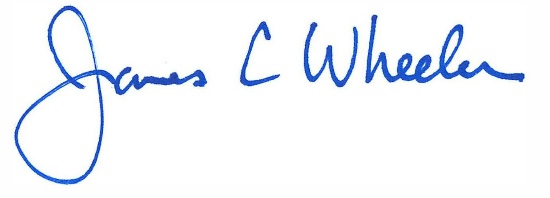 James C Wheeler